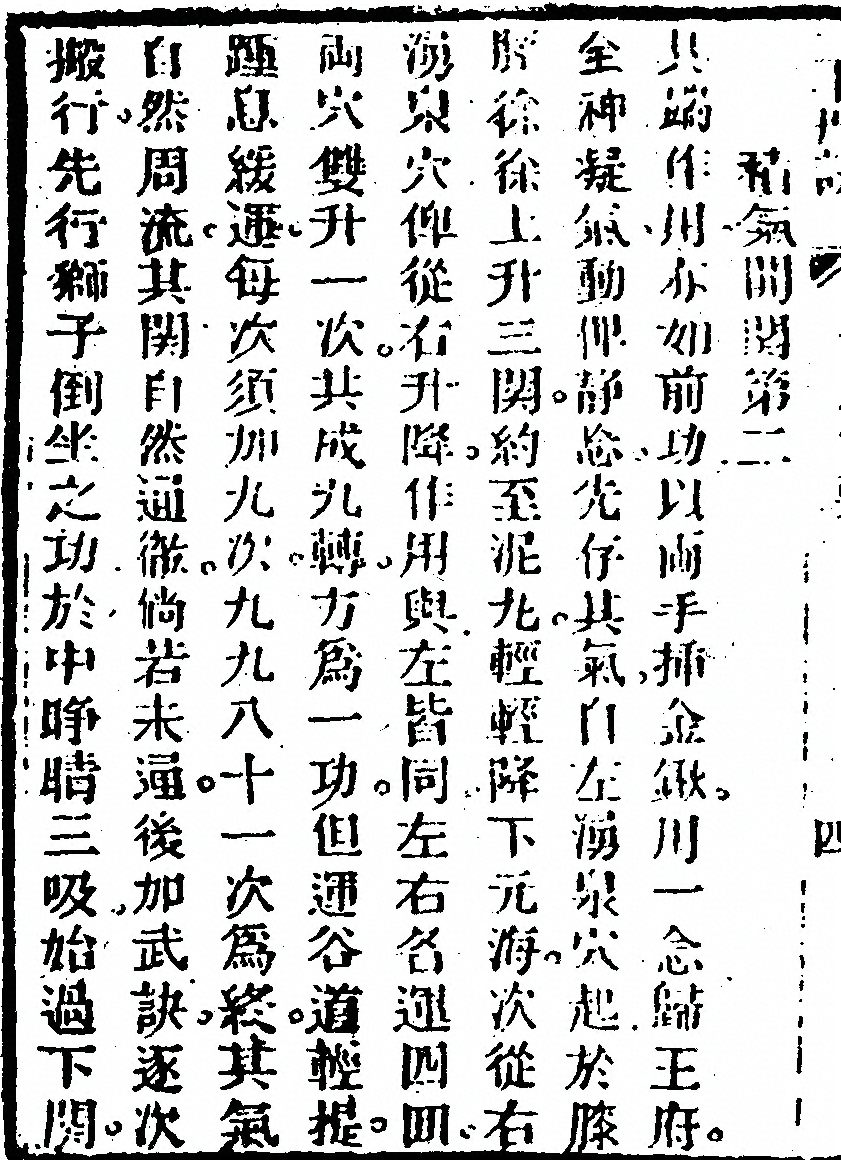 積氣開關第二
其端作用亦如前功以兩手插金鍬。用一念歸玉府。
全神凝氣、動俾靜念、先存其氣、自左湧泉穴起於膝
脛徐徐上升三關。約至泥丸。輕輕降下元海。次從右
湧泉穴俾從右升降。作用與左皆同左右各運四四。
兩穴雙升一次。共成九轉。方爲一功。但運谷道輕提。
踵息緩運。每次須加九次。九九八十一次爲終。其氣
自然周流。其關自然通徹。倘若未通。後加武訣。逐次
搬行。先行獅子倒坐之功於中睜睛三吸、始過下關。